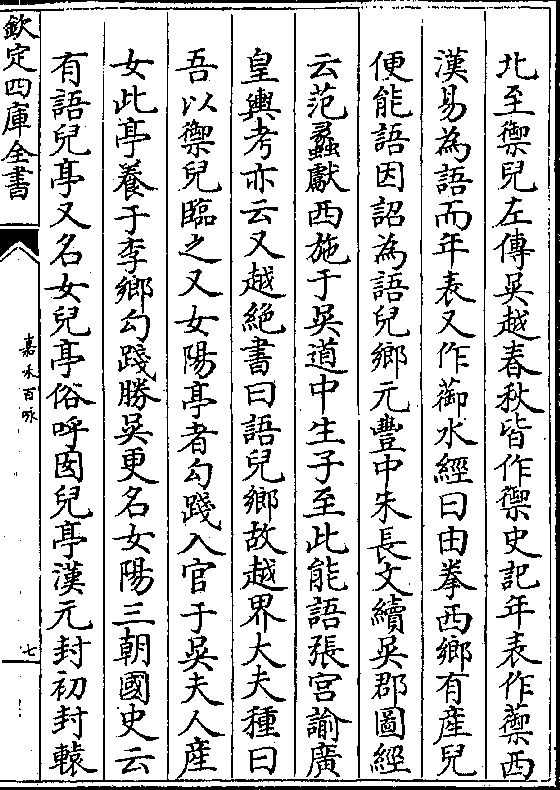 北至禦兒左傳吳越春秋皆作禦史記年表作蘌西
漢易為語而年表又作蓹水經曰由拳西鄉有產兒
便能語因詔為語兒鄉元豐中朱長文續吳郡圖經
云范蠡獻西施于吳道中生子至此能語張宫諭廣
皇輿考亦云又越絶書曰語兒鄉故越界大夫種曰
吾以禦兒臨之又女陽亭者勾踐入官于吳夫人產
女此亭養于李鄉勾踐勝吳更名女陽三朝國史云
有語兒亭又名女兒亭俗呼囡兒亭漢元封初封轅
欽定四庫全書
嘉禾百咏
七